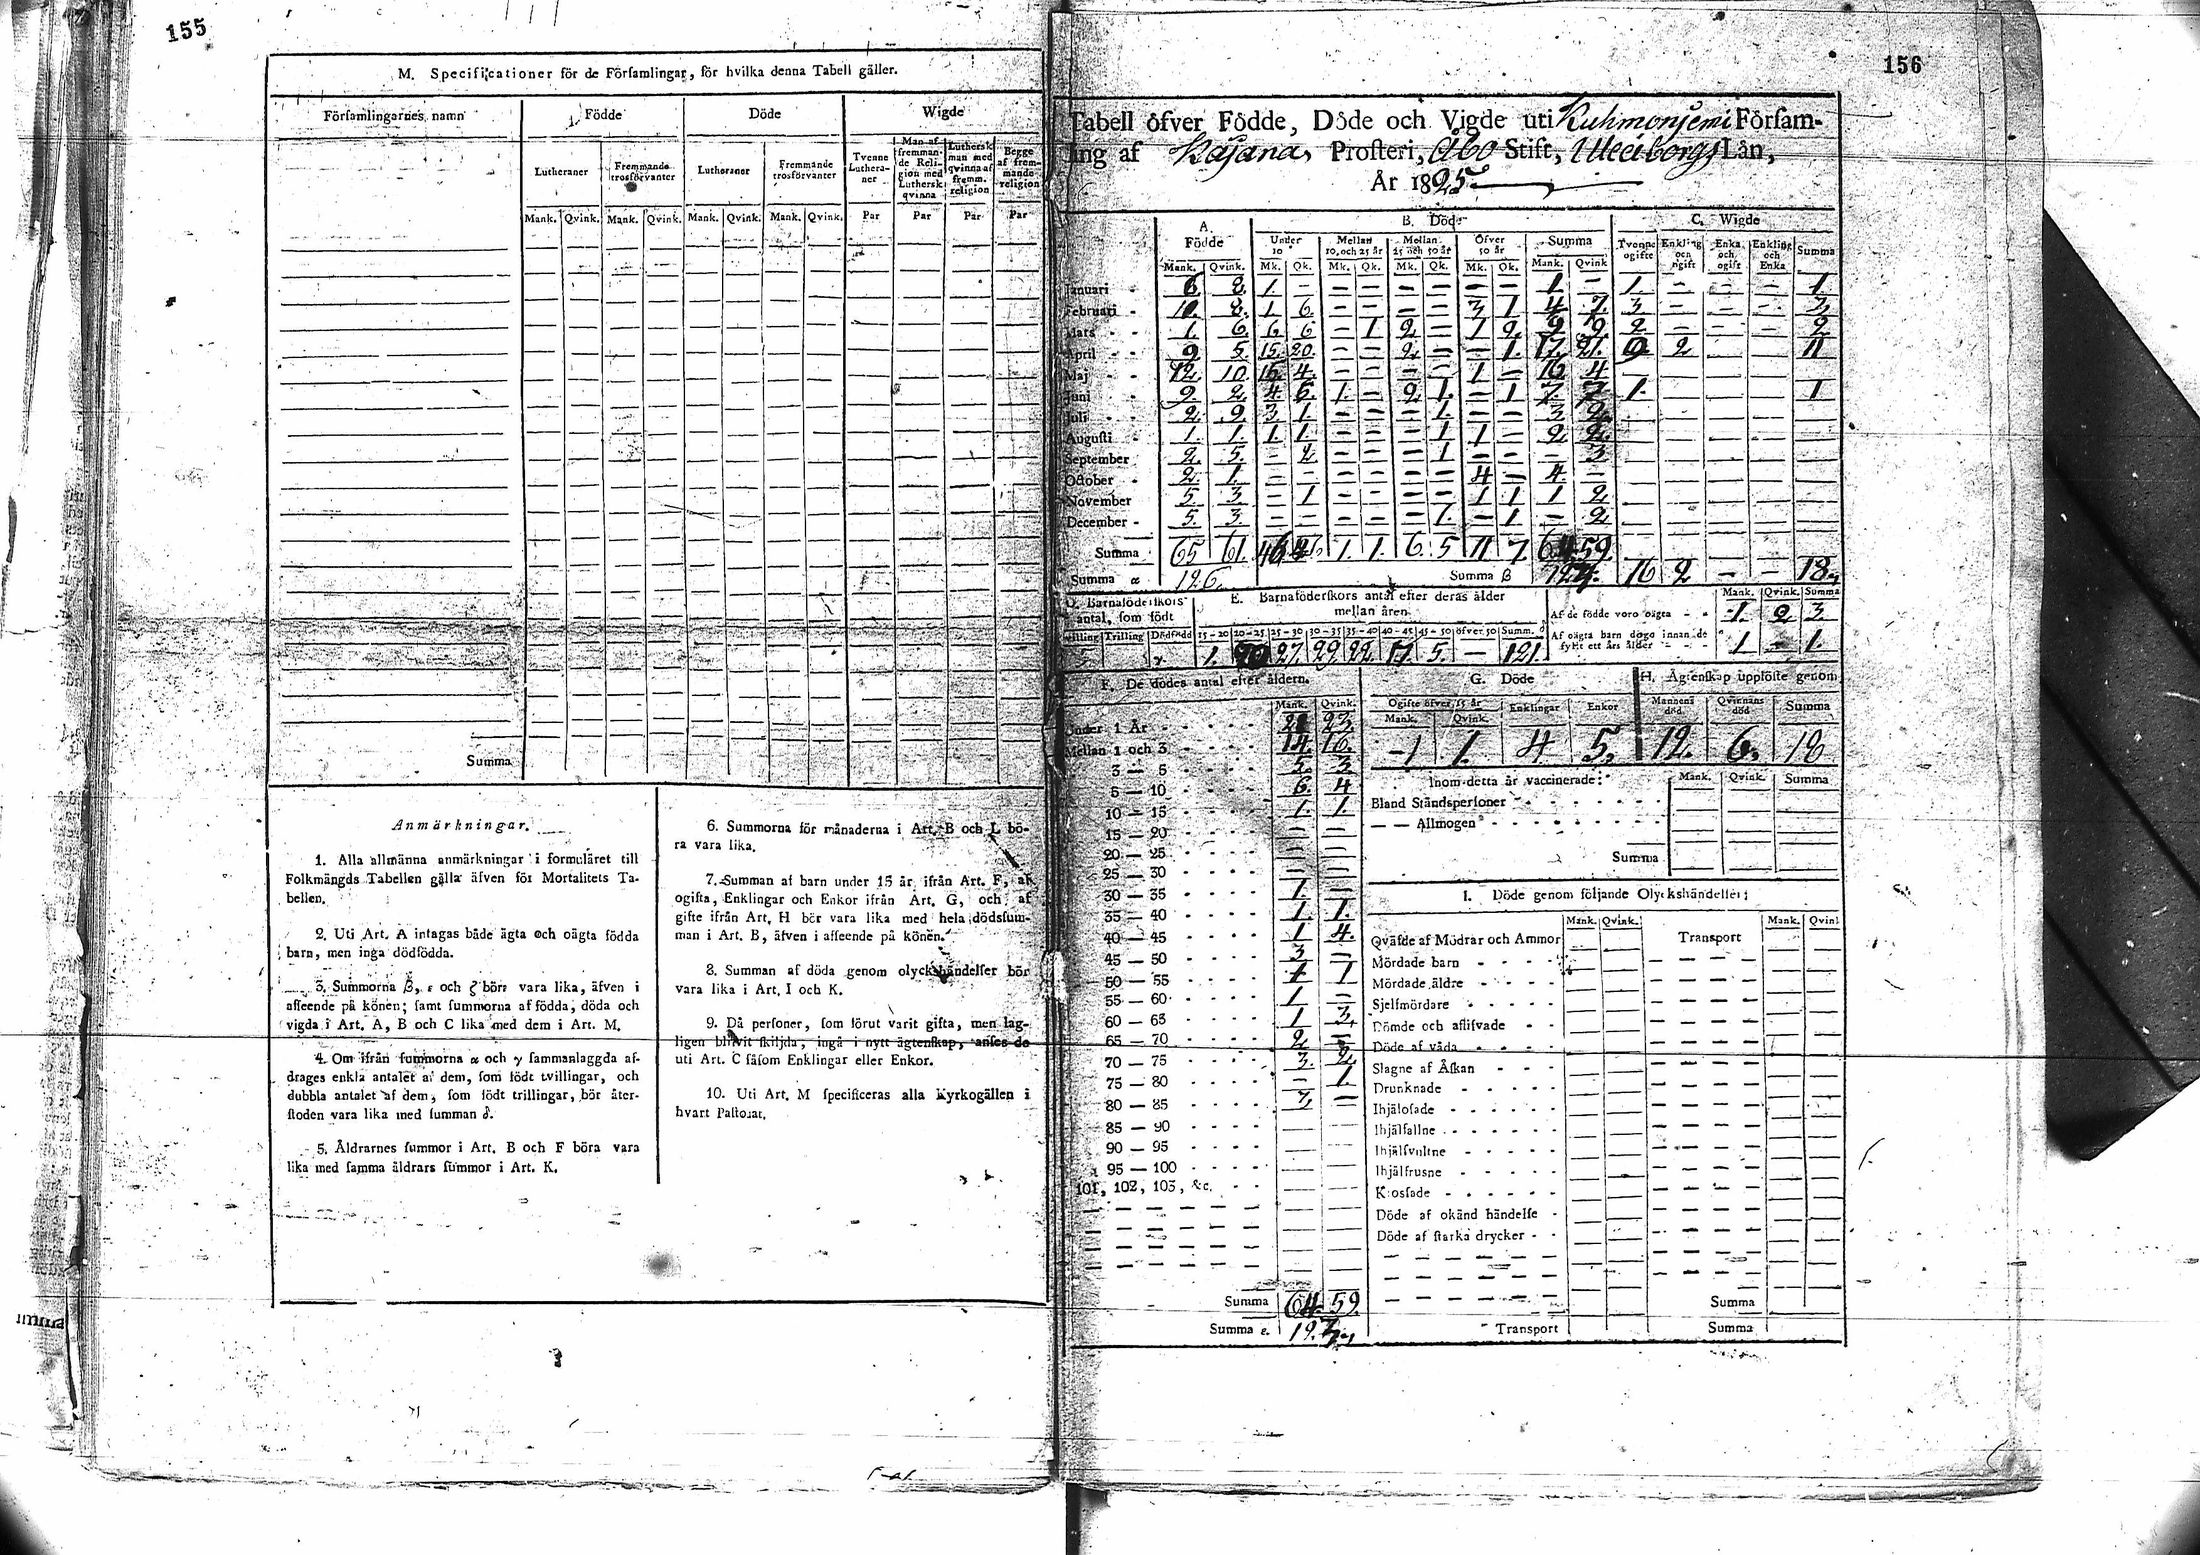 155
M. Specificationer för de Församlingar, för hvilka denna Tabell gäller.
Församlingarnes namn Födde Döde Wigde
Lutheraner Fremmande trosförvanter Lutheraner Fremmande trosförvanter Tvenne Lutheraner Man af fremmande Religion med Luthersk qvinna Luthersk man med qvinna af fremm. religion Begge af fremmande religion
Mank. Qvink. Mank. Qvink. Mank. Qvink. Mank. Qvink. Par Par Par Par
Summa
Anmärkningar.
1. Alla allmänna anmärkningar i formuläret till
Folkmängds Tabellen gälla äfven för Mortalitets Ta-
bellen.
2. Uti Art. A intagas både ägta och oägta födda
barn, men inga dödfödda.
3. Summorna β, ε och ζ böra vara lika, äfven i
afseende på könen; samt summorna af födda, döda och
vigda i Art. A, B och C lika med dem i Art. M.
4. Om ifrån summorna α och γ sammanlaggda af-
drages enkla antalet af dem, som födt tvillingar, och
dubbla antalet af dem, som födt trillingar, bör åter-
stoden vara lika med summan δ.
5. Åldrarnes summor i Art. B och F böra vara
lika med samma åldrars summor i Art. K.
6. Summorna för månaderna i Art. B och L bö-
ra vara lika.
7. Summan af barn under 15 år ifrån Art. F, af
ogifta, Enklingar och Enkor ifrån Art. G, och af
gifte ifrån Art. H bör vara lika med hela dödssum-
man i Art. B, äfven i afseende på könen.
8. Summan af döda genom olyckshändelser bör
vara lika i Art. I och K.
9. Då personer, som förut varit gifta, men lag-
ligen blifvit skiljda, ingå i nytt ägtenskap, anses de
uti Art. C såsom Enklingar eller Enkor.
10. Uti Art. M specificeras alla Kyrkogällen i
hvart Pastorat.
156
Tabell öfver Födde, Döde och Vigde uti Kuhmoniemi Församling
af Kajana Prosteri, Åbo Stift, Uleåborgs Län,
År 1825
A. Födde B. Döde C. Wigde
Under 10 Mellan 10, och 25 år Mellan 25 och 50 år Öfver 50 år Summa Tvenne ogifte Enkling och ogift Enka och ogift Enkling och Enka Summa
Mank. Qvink. Mk. Qk. Mk. Qk. Mk. Qk. Mk. Qk. Mank. Qvink
Januari 6 8 1. – – – – – – – 1 – 1. – – – 1.
Februari 10. 8. 1 6. – – – – 3 1 4 7. 3 – – – 3
Mars 1. 6. 6 6 – 1 2 – 1 2 9 9 2 – – – 2
April 9 5. 15. 20. – – 2 – – 1. 17. 21. 9 2 – – 11
Maj 12. 10 15 4. – – – – 1 – 16 4 –
Juni 9. 2 4 6. 1. – 2 1. – 1 7. 1. 1
Juli 2 9. 3 1. – – – 1. – – 3 2.
Augusti 1. 1. 1. 1 – – – 1 1 – 2 2.
September 2. 5. – 2 – – – 1 – – – 3
October 2. 1. – – – – – – 4 – 4. –
November 5. 3. – 1 – – – – 1 1 1 2
December 5. 3. – – – – – 1. – 1 – 2
Summa 65 61. 46 1. 1. 6. 5 11 7. 64 59.
Summa α 126. Summa β 123. 16 2 – – 18.
D. Barnaföderskors antal, som födt E. Barnaföderskors antal efter deras ålder mellan åren Mank. Qvink. Summa
Af de födde voro oägta 1. 2 3.
Tvilling Trilling Dödfödd 15–20 20–25 25–30 30–35 35–40 40–45 45–50 öfver 50 Summ. δ
Af oägta barn dogo innan de fyllt ett års ålder 1 – 1.
5 1. 20 27. 29. 22. 17. 5. – 121.
F. De dödes antal efter åldern. G. Döde H. Ägtenskap upplöste genom
Mank. Qvink. Ogifte öfver 15 år Enklingar Enkor Mannens död Qvinnans död Summa
Mank. Qvink.
1 1. 4 5. 12. 6. 18
Under 1 År 23.
Mellan 1 och 3 14. 16.
3 – 5 5. 3.
5 – 10 6. 4
10 – 15 1. 1
15 – 20 – –
20 – 25 – –
25 – 30 – –
30 – 35 1. –
35 – 40 1. 1.
40 – 45 1 4.
45 – 50 3 –
50 – 55 1 1
55 – 60 1 –
60 – 65 1 3.
65 – 70 2 –
70 – 75 3. 2.
75 – 80 – 1.
80 – 85 3 –
85 – 90
90 – 95
95 – 100
101, 102, 103, &c.
Summa 64. 59.
Summa ε. 123.
Inom detta år vaccinerade: Mank. Qvink. Summa
Bland Ståndspersoner
– – Allmogen
Summa
I. Döde genom följande Olyckshändelser:
Mank. Qvink. Mank. Qvink
Qväfde af Mödrar och Ammor Transport
Mördade barn
Mördade äldre
Sjelfmördare
Dömde och aflifvade
Döde af våda
Slagne af Åskan
Drunknade
Ihjälosade
Ihjälfallne
Ihjälsvultne
Ihjälfrusne
Krossade
Döde af okänd händelse
Döde af starka drycker
Summa
Transport Summa